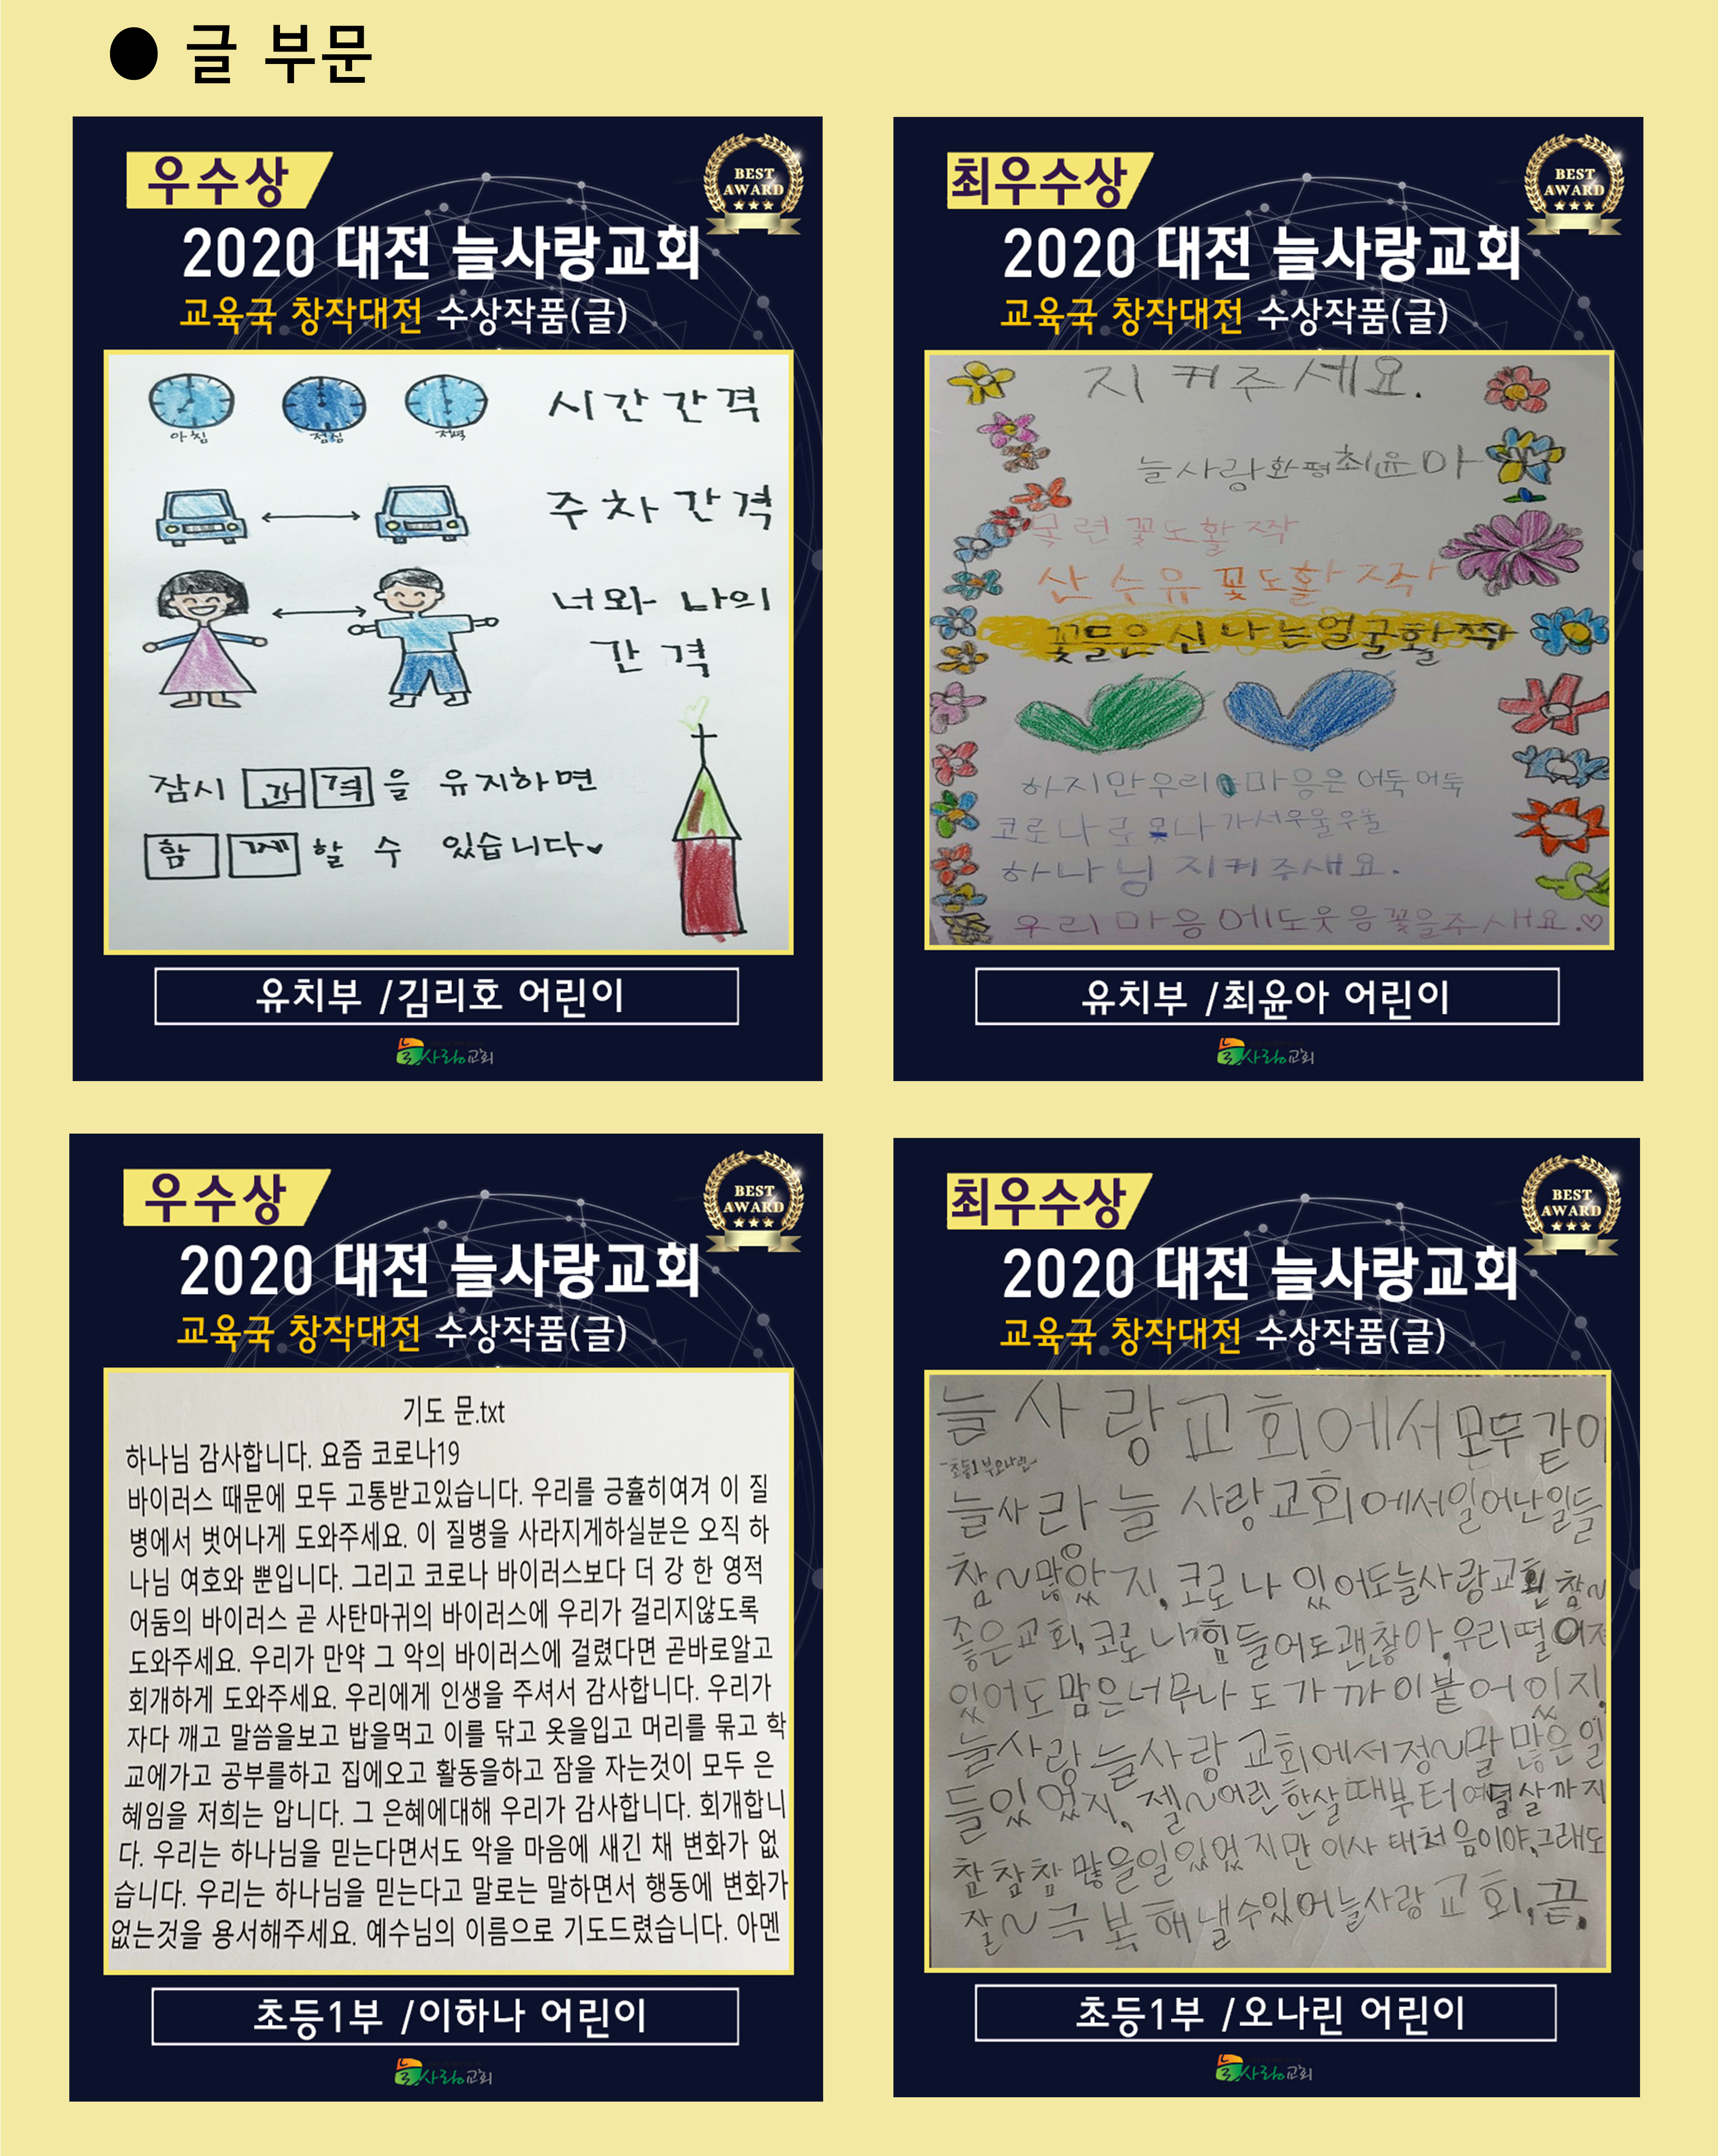 ● 글 부문
우수상
BEST
AWARD
2020 대전 늘사랑교회
교육국 창작대전 수상작품(글)
아침 점심 저녁
시간 간격
주차 간격
너와 나의
간격
잠시 간격을 유지하면
함께 할 수 있습니다
유치부 /김리호 어린이
늘사랑교회
최우수상
BEST
AWARD
2020 대전 늘사랑교회
교육국 창작대전 수상작품(글)
지켜주세요.
늘사랑화평최윤아
목련꽃도활짝
산수유꽃도활짝
꽃들은신나는얼굴활짝
하지만우리마음은어둑어둑
코로나로못나가서우울우울
하나님지켜주새요.
우리마음에도웃음꽃을주새요.♡
유치부 /최윤아 어린이
늘사랑교회
우수상
BEST
AWARD
2020 대전 늘사랑교회
교육국 창작대전 수상작품(글)
기도 문.txt
하나님 감사합니다. 요즘 코로나19
바이러스 때문에 모두 고통받고있습니다. 우리를 긍휼히여겨 이 질
병에서 벗어나게 도와주세요. 이 질병을 사라지게하실분은 오직 하
나님 여호와 뿐입니다. 그리고 코로나 바이러스보다 더 강 한 영적
어둠의 바이러스 곧 사탄마귀의 바이러스에 우리가 걸리지않도록
도와주세요. 우리가 만약 그 악의 바이러스에 걸렸다면 곧바로알고
회개하게 도와주세요. 우리에게 인생을 주셔서 감사합니다. 우리가
자다 깨고 말씀을보고 밥을먹고 이를 닦고 옷을입고 머리를 묶고 학
교에가고 공부를하고 집에오고 활동을하고 잠을 자는것이 모두 은
혜임을 저희는 압니다. 그 은혜에대해 우리가 감사합니다. 회개합니
다. 우리는 하나님을 믿는다면서도 악을 마음에 새긴 채 변화가 없
습니다. 우리는 하나님을 믿는다고 말로는 말하면서 행동에 변화가
없는것을 용서해주세요. 예수님의 이름으로 기도드렸습니다. 아멘
초등1부 /이하나 어린이
늘사랑교회
최우수상
BEST
AWARD
2020 대전 늘사랑교회
교육국 창작대전 수상작품(글)
늘사랑교회에서모두같이
-초등1부오나린-
늘사랑늘사랑교회에서일어난일들
참~많았지,코로나있어도늘사랑교회참~
좋은교회,코로나힘들어도괜찮아,우리떨어져
있어도맘은너무나도가까이붙어있지,
늘사랑늘사랑교회에서정~말많은일
들있었지,젤~어린한살때부터여덟살까지
참참참많을일있었지만이사태처음이야,그래도
잘~극복해낼수있어늘사랑교회,끝,
초등1부 /오나린 어린이
늘사랑교회